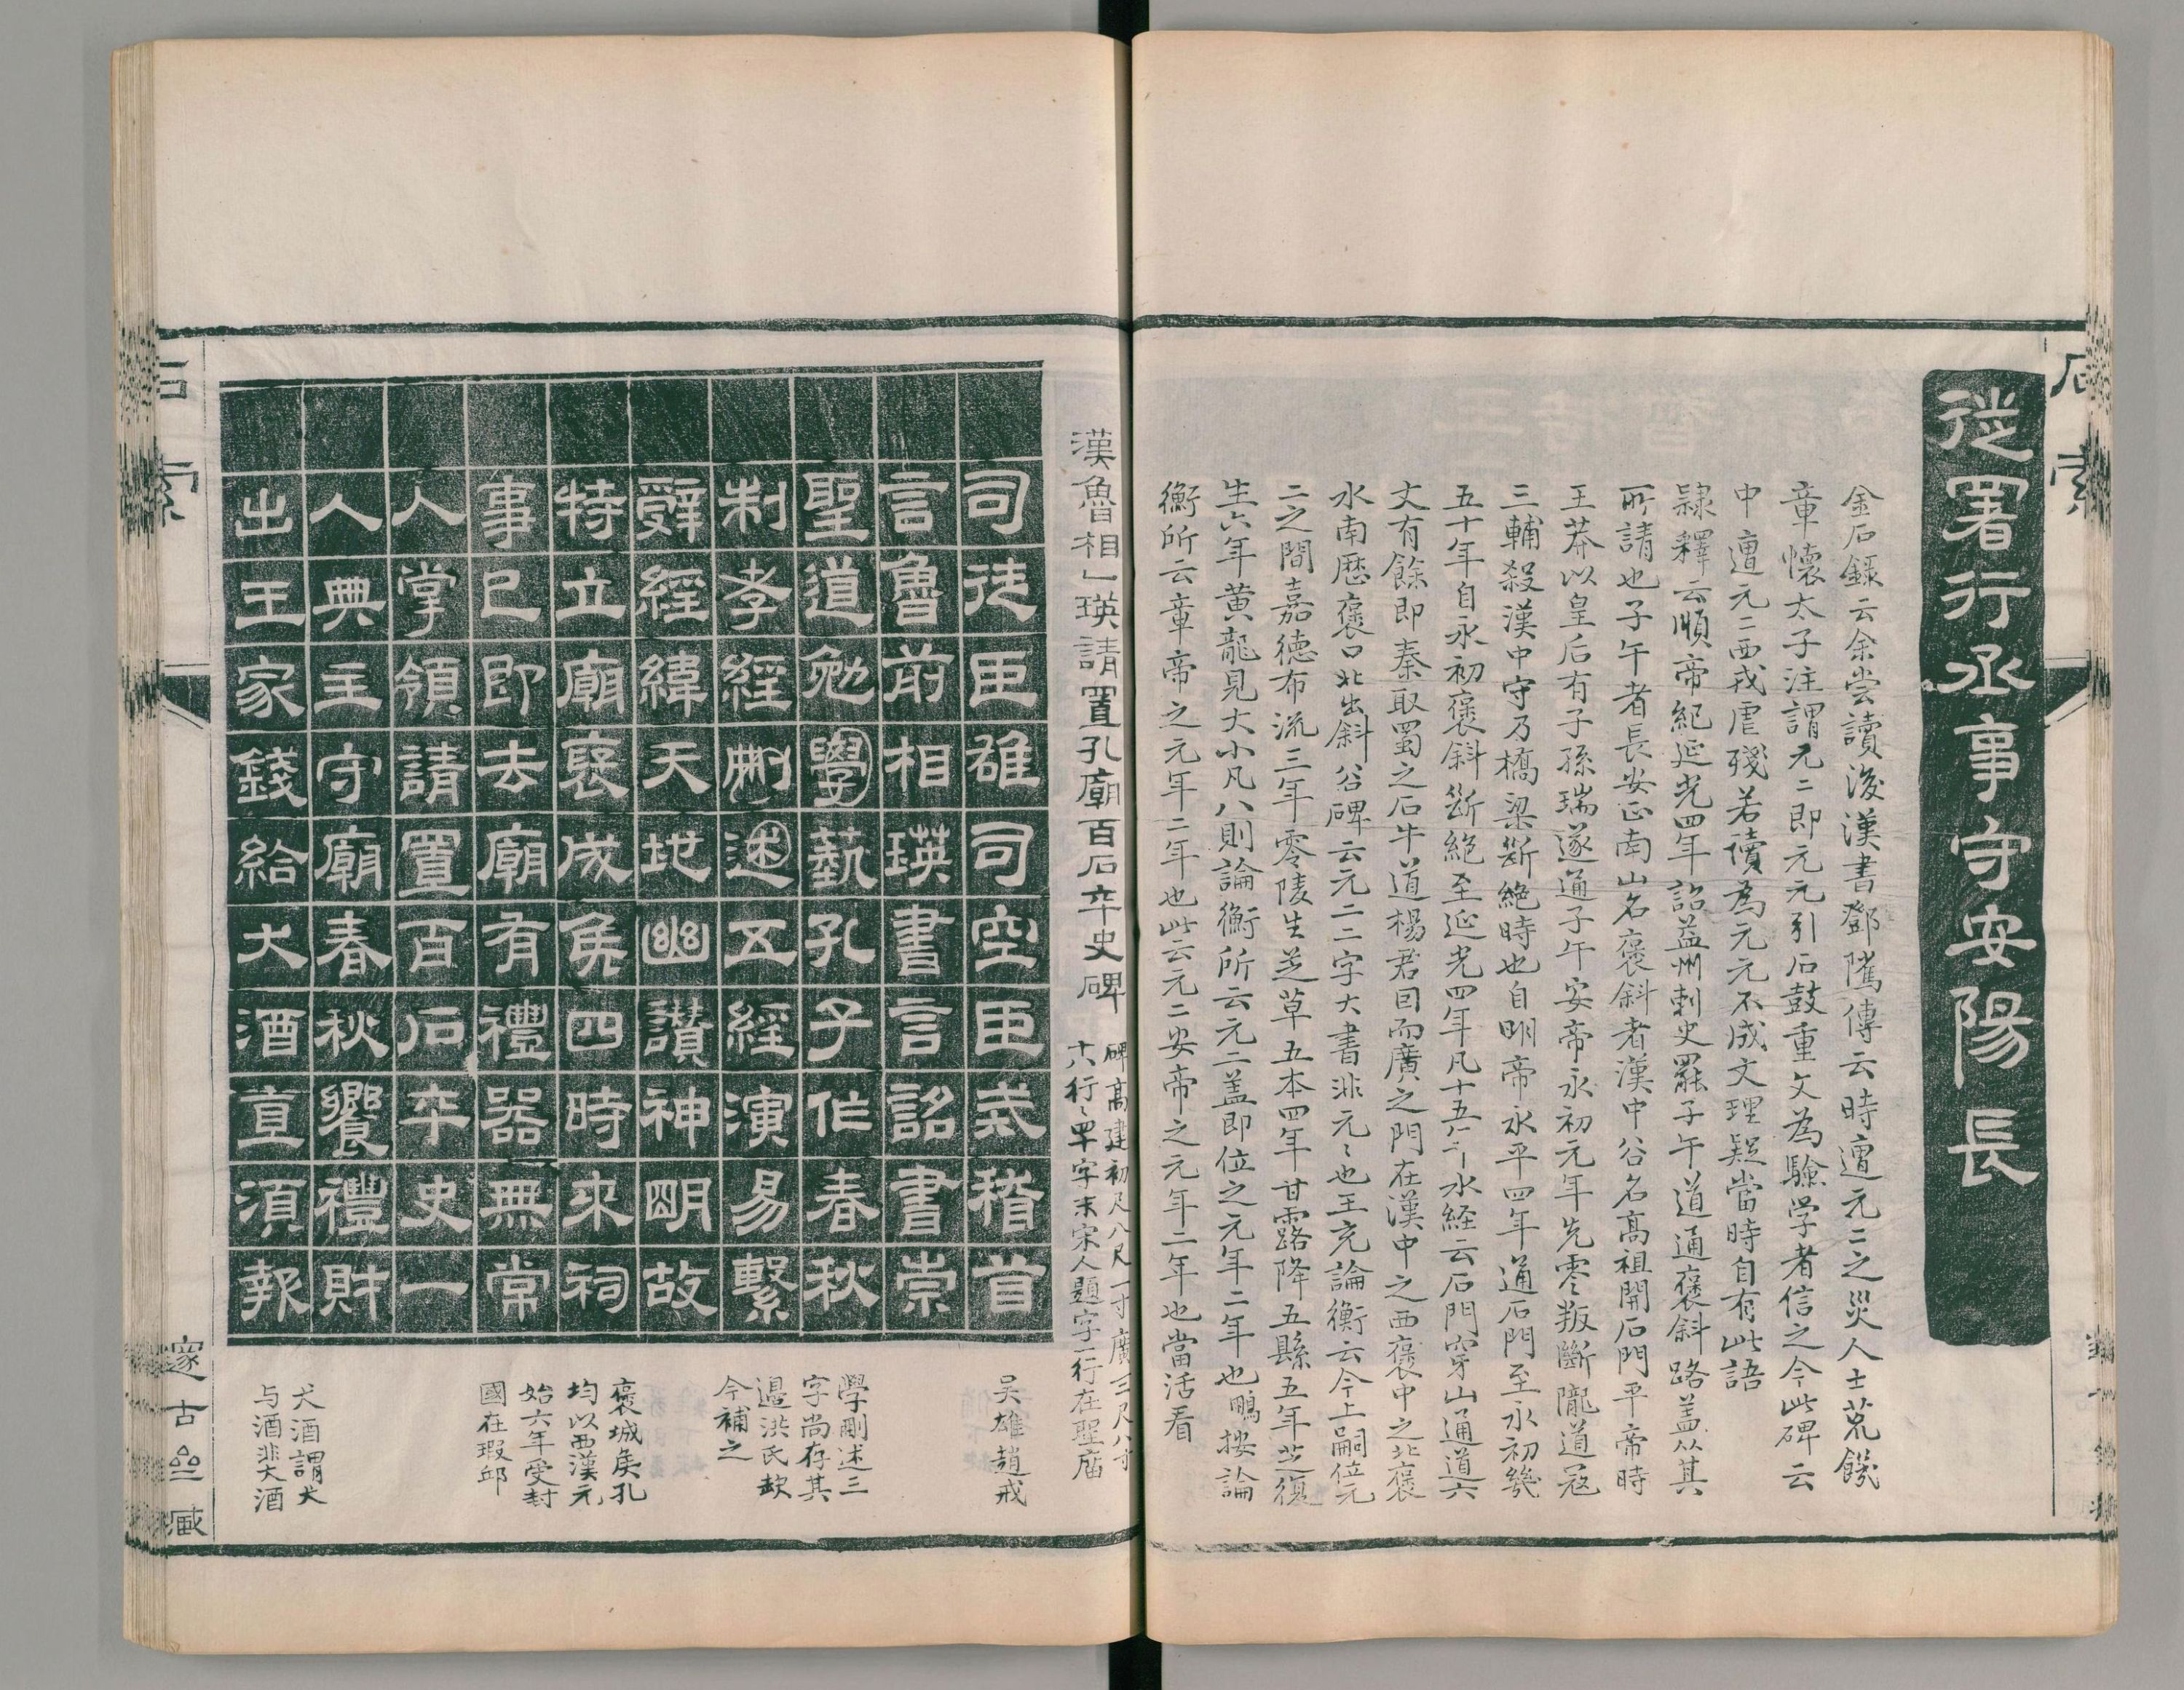 石索
從署行丞事守安陽長
金石錄云余嘗讀後漢書鄧隲傳云時遭元二之災人士荒饑
章懷太子注謂元二即元元引石鼓重文為驗学者信之今此碑云
中遭元二西戎虐殘若讀為元元不成文理疑當時自有此語
隸釋云順帝紀延光四年詔益州刺史罷子午道通褒斜路盖从其
所請也子午者長安正南山名褒斜者漢中谷名高祖開石門平帝時
王莽以皇后有子孫瑞遂通子午安帝永初元年先零叛斷隴道寇
三輔殺漢中守乃橋梁斷絶時也自明帝永平四年通石門至永初幾
五十年自永初褒斜斷絶至延光四年凡十五六年水経云石門穿山通道六
丈有餘即秦取蜀之石牛道楊君因而廣之門在漢中之西褒中之北褒
水南歷褒口北出斜谷碑云元二二字大書非元〻也王充論衡云今上嗣位元
二之間嘉德布流三年零陵生芝草五本四年甘露降五縣五年芝復
生六年黄龍見大小凡八則論衡所云元二盖即位之元年二年也鵬按論
衡所云章帝之元年二年也此云元二安帝之元年二年也當活看
漢魯相乙瑛請置孔廟百石卒史碑
碑高建初尺八尺一寸廣三尺八寸
十八行〻四十字末宋人題字一行在聖庙
司徒臣雄司空臣戒稽首
言魯前相瑛書言詔書崇
聖道勉學藝孔子作春秋
制孝經刪述五經演易繫
辭經緯天地幽讃神明故
特立廟褒成矦四時來祠
事已即去廟有禮器無常
人掌領請置百石卒史一
人典主守廟春秋饗禮財
出王家錢給犬酒直須報
吴雄趙戒
學刪述三
字尚存其
邊洪氏缺
今補之
褒城矦孔
均以西漢元
始六年受封
國在瑕邱
犬酒謂犬
与酒非大酒
石索
邃古亝藏